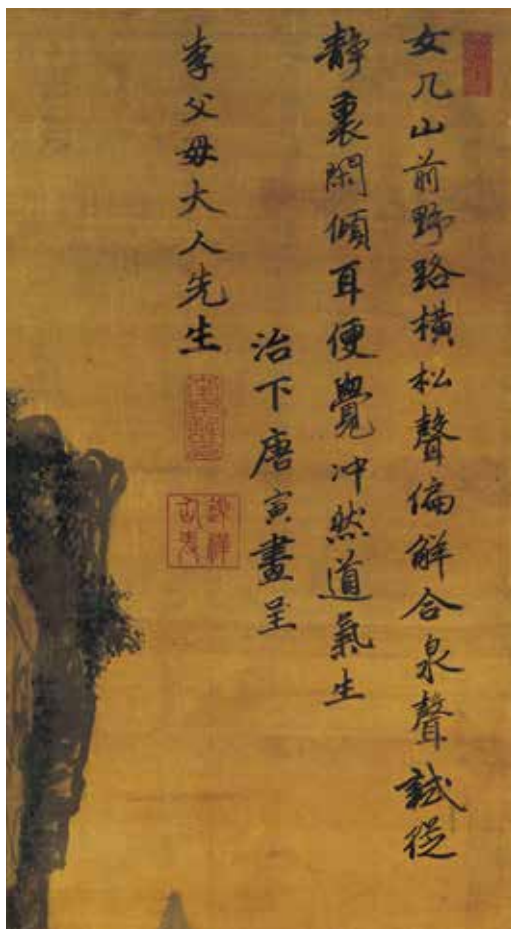 女几山前野路橫松聲偏解合泉聲試從
靜裏閑傾耳便覺冲然道氣生
治下唐寅畫呈
李父母大人先生